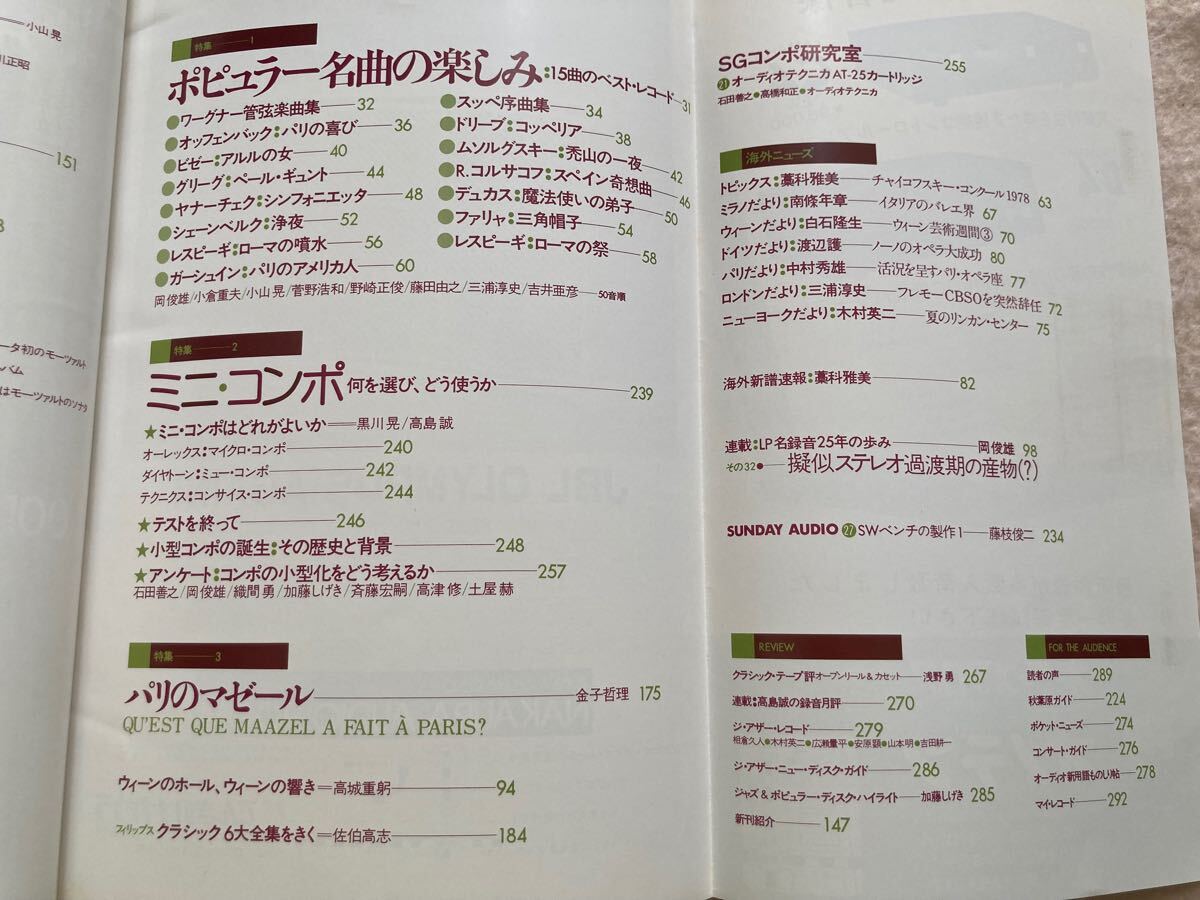 小山晃
川正昭
151
ータ初のモーツァルト
ルバム
はモーツァルトのソナタ
特集——1
ポピュラー名曲の楽しみ:15曲のベスト・レコード—31
●ワーグナー管弦楽曲集——32
●オッフェンバック:パリの喜び——36
●ビゼー:アルルの女——40
●グリーグ:ペール・ギュント——44
●ヤナーチェク:シンフォニエッタ——48
●シェーンベルク:浄夜——52
●レスピーギ:ローマの噴水——56
●ガーシュイン:パリのアメリカ人——60
●スッペ序曲集——34
●ドリーブ:コッペリア——38
●ムソルグスキー:禿山の一夜——42
●R.コルサコフ:スペイン奇想曲——46
●デュカス:魔法使いの弟子——50
●ファリャ:三角帽子——54
●レスピーギ:ローマの祭——58
岡俊雄/小倉重夫/小山晃/菅野浩和/野崎正俊/藤田由之/三浦淳史/吉井亜彦—50音順
特集——2
ミニ・コンポ 何を選び、どう使うか——239
★ミニ・コンポはどれがよいか——黒川晃/高島誠
オーレックス:マイクロ・コンポ——240
ダイヤトーン:ミュー・コンポ——242
テクニクス:コンサイス・コンポ——244
★テストを終って——246
★小型コンポの誕生:その歴史と背景——248
★アンケート:コンポの小型化をどう考えるか——257
石田善之/岡俊雄/織間勇/加藤しげき/斉藤宏嗣/高津修/土屋赫
特集——3
パリのマゼール——金子哲理 175
QU'EST QUE MAAZEL A FAIT À PARIS?
ウィーンのホール、ウィーンの響き=高城重躬——94
フィリップス クラシック6大全集をきく=佐伯高志——184
SGコンポ研究室——255
㉑オーディオテクニカAT-25カートリッジ
石田善之●高橋和正●オーディオテクニカ
海外ニュース
トピックス:藁科雅美——チャイコフスキー・コンクール1978 63
ミラノだより:南條年章——イタリアのバレエ界 67
ウィーンだより:白石隆生——ウィーン芸術週間③ 70
ドイツだより:渡辺護——ノーノのオペラ大成功 80
パリだより:中村秀雄——活況を呈すパリ・オペラ座 77
ロンドンだより:三浦淳史——フレモーCBSOを突然辞任 72
ニューヨークだより:木村英二——夏のリンカン・センター 75
海外新譜速報:藁科雅美——82
連載:LP名録音25年の歩み——岡俊雄 98
その32●—擬似ステレオ過渡期の産物(?)
SUNDAY AUDIO ㉗SWベンチの製作1——藤枝俊二 234
REVIEW
クラシック・テープ評 オープンリール&カセット——浅野勇 267
連載:高島誠の録音月評——270
ジ・アザー・レコード——279
相倉久人●木村英二●広瀬量平●安原顕●山本明●吉田耕一
ジ・アザー・ニュー・ディスク・ガイド——286
ジャズ&ポピュラー・ディスク・ハイライト——加藤しげき 285
新刊紹介——147
FOR THE AUDIENCE
読者の声——289
秋葉原ガイド——224
ポケット・ニューズ——274
コンサート・ガイド——276
オーディオ新用語ものしり帖——278
マイ・レコード——292